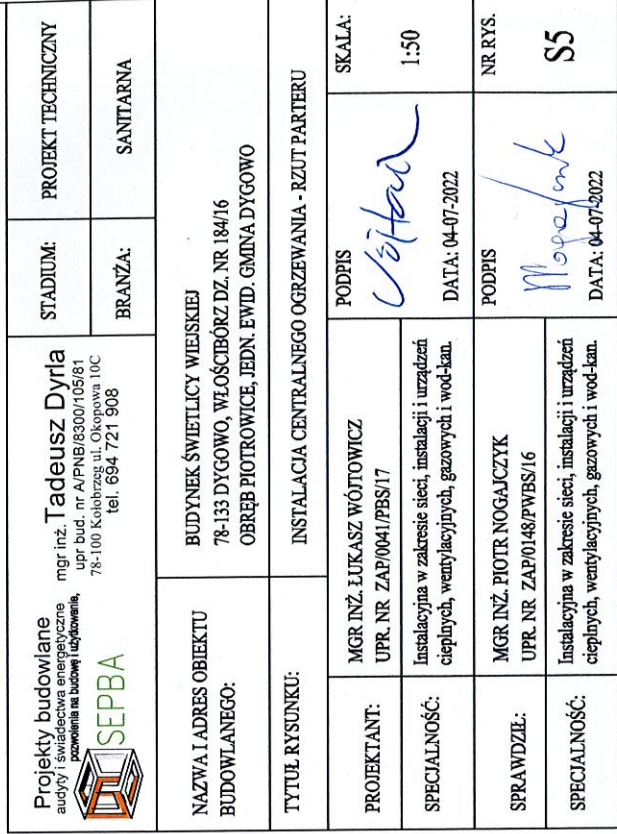 Projekty budowlane
audyty i świadectwa energetyczne
pozwolenia na budowę i użytkowanie,
SEPBA
mgr inż. Tadeusz Dyrla
upr bud. nr A/PNB/8300/105/81
78-100 Kołobrzeg ul. Okopowa 10C
tel. 694 721 908
STADIUM:
PROJEKT TECHNICZNY
BRANŻA:
SANITARNA
NAZWA I ADRES OBIEKTU
BUDOWLANEGO:
BUDYNEK ŚWIETLICY WIEJSKIEJ
78-133 DYGOWO, WŁOŚCIBÓRZ DZ. NR 184/16
OBRĘB PIOTROWICE, JEDN. EWID. GMINA DYGOWO
TYTUŁ RYSUNKU:
INSTALACJA CENTRALNEGO OGRZEWANIA - RZUT PARTERU
PROJEKTANT:
MGR INŻ. ŁUKASZ WÓJTOWICZ
UPR. NR ZAP/0041/PBS/17
PODPIS
DATA: 04-07-2022
SKALA:
1:50
SPECJALNOŚĆ:
Instalacyjna w zakresie sieci, instalacji i urządzeń
cieplnych, wentylacyjnych, gazowych i wod-kan.
SPRAWDZIŁ:
MGR INŻ. PIOTR NOGAJCZYK
UPR. NR ZAP/0148/PWBS/16
PODPIS
DATA: 04-07-2022
NR RYS.
S5
SPECJALNOŚĆ:
Instalacyjna w zakresie sieci, instalacji i urządzeń
cieplnych, wentylacyjnych, gazowych i wod-kan.